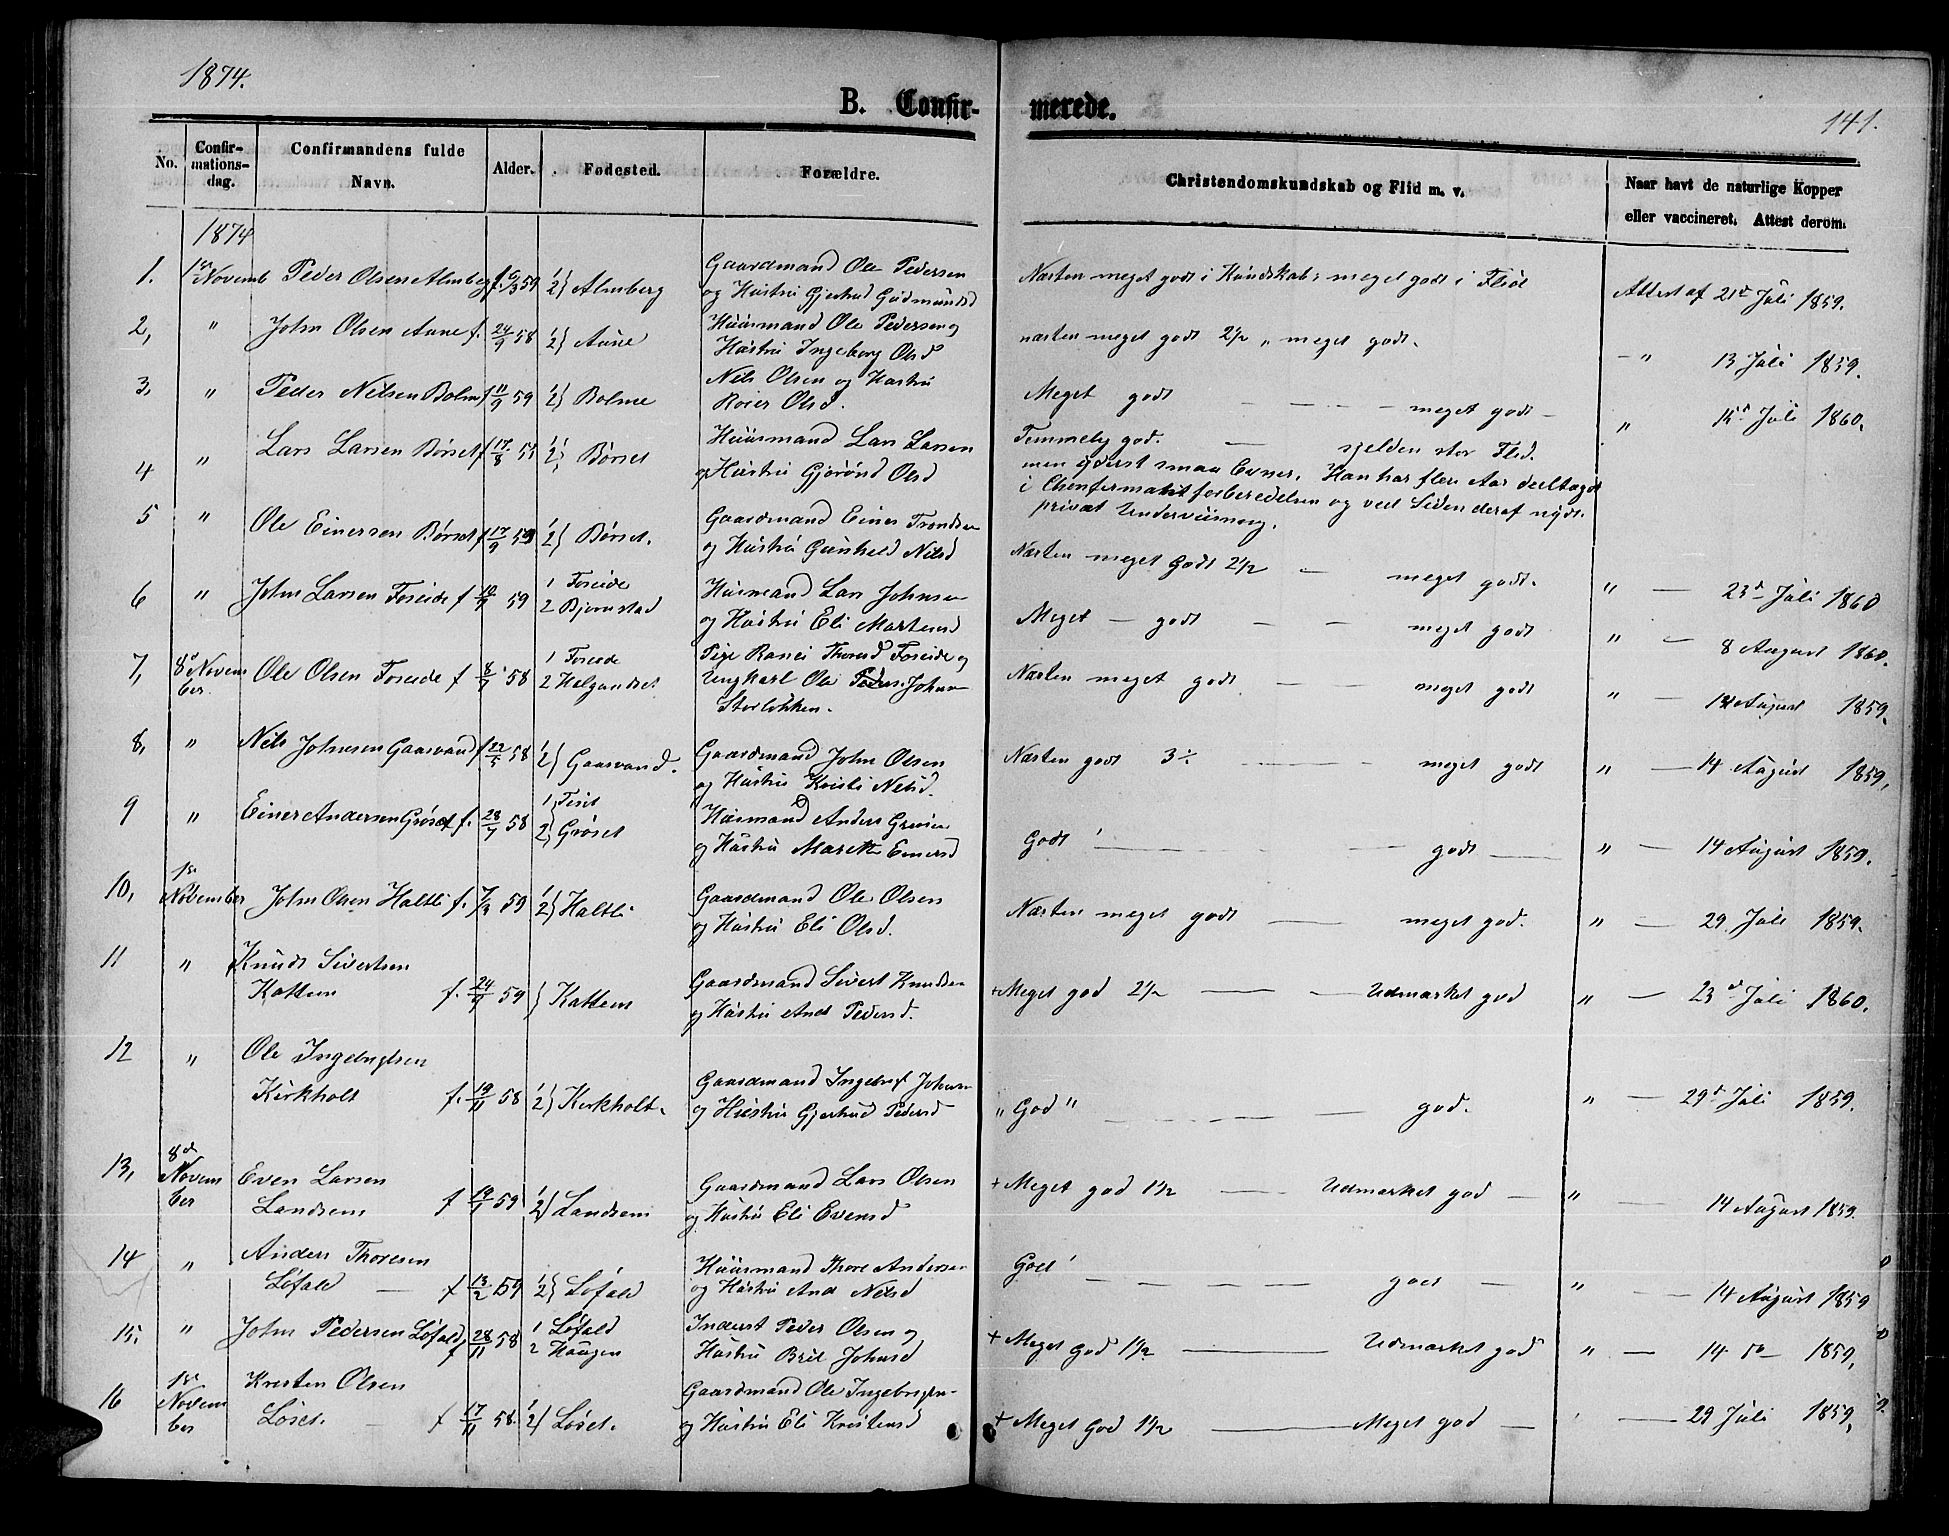 1874.
B. Confir-
merede.
141.
No.
Confir-
mations-
dag.
Confirmandens fulde
Navn.
Alder.
Fødested.
Forældre.
Christendomskundskab og Flid m. v.
Naar havt de naturlige Kopper
eller vaccineret. Attest derom.
1874
1. Novemb Peder Olsen Almberg f. 6/3 59 1/2} Almberg Gaardmand Ole Pedersen
og Hustru Gjertrud Gudmundsd
Næsten meget godt i Kundskab; meget godt i Flid Attest af 21d Juli 1859.
2, " John Olsen Aune f. 24/9 58 1/2} Aune Huusmand Ole Pedersen og
Hustru Ingeborg Olsd
næsten meget godt 2 1/2 " meget godt. — " 13 Juli 1859.
3, " Peder Nilsen Bolme f 11/9 59 1/2} Bolme Nils Olsen og Hustru
Olsd.
Meget godt — — — meget godt — " 15d Juli 1860.
4 " Lars Larsen Børset f 17/8 1/2} Børset Huusmand Lars Larsen
og Hustru Olsd
Temmelig god. — sjelden stor Flid.
men yderst smaa Evner. Han har flere Aar deeltaget
i forberedelsen og ved Siden deraf nydt
privat Underviisning.
5 " Ole Einersen Børset f 17/9 59 1/2} Børset. Gaardmand Einer Trondsen
og Hustru Gunhild Nilsd
Næsten meget godt 2 1/2 — meget godt. " — 23d Juli 1860
6 " John Larsen Foseide f 59 1 Foseide
2 Bjørnstad
Huusmand Lars Johnsen
og Hustru Eli Martensd
Meget — godt — — meget godt " — 8 August 1860.
7, 8d Novem
ber.
Ole Olsen Foseide f 8/7 58 1 Foseide
2 Helgandset
Pige Thoresd Foseide og
Ungkarl Ole Peder Johnsen
Storløkken.
Næsten meget godt — — meget godt " — 14 August 1859.
8, " Nils Johnsen Gaasvand f 22/5 58 1/2} Gaasvand. Gaardmand John Olsen
og Hustru Kristi Nilsd.
Næsten godt 3 ÷ — meget godt " — 14 August 1859,
9 " Einer Andersen Grøset f. 28/7 58 1}
2} Grøset
Huusmand Anders
og Hustru Marit Einersd
Godt — — godt — " — 14 August 1859.
10, November John Olsen Haltli f. 7/3 59 1/2} Haltli Gaardmand Ole Olsen
og Hustru Eli Olsd.
Næsten meget godt — — meget god. " — 29 Juli 1859.
11 " Knudt Sivertsen
Kattem f. 59 } Kattem Gaardmand Sivert Knudsen
og Hustru Ane Pedersd.
+ Meget god 2 1/2 — — Udmærket god " — 23d Juli 1860.
12 " Ole Ingebrigtsen
Kirkholt f. 19/11 58 1/2} Kirkholt. Gaardmand Ingebrigt Johnsen
og Hustru Gjertrud Pedersd
" God " — — god. " — 29d Juli 1859.
13, 8de
Novem
ber
Even Larsen
Landsem f 59 1/2} Landsem Gaardmand Lars Olsen
og Hustru Eli Evensd
+ Meget god 1 1/2 — Udmærket god — " — 14 August 1859.
14 " Anders Thoresen
Løfald — f 13/2 59 1/2} Løfald Huusmand Thore Andersen
og Hustru Ane Nilsd
God — — god — " — 14 August 1859
15, " John Pedersen Løfald f 28/11 58 1 Løfald
2 Haugen
Inderst Peder Olsen og
Hustru Brit Johnsd
+ Meget God 1 1/2 — Udmærket god " — 14 do 1859,
16 Novem
ber
Kristen Olsen
Løset. — f 17/11 58. 1/2} Løset. Gaardmand Ole Ingebrigtsen
og Hustru Eli Kristensd
+ Meget God 1 1/2 — Meget god — — 29 Juli 1859,